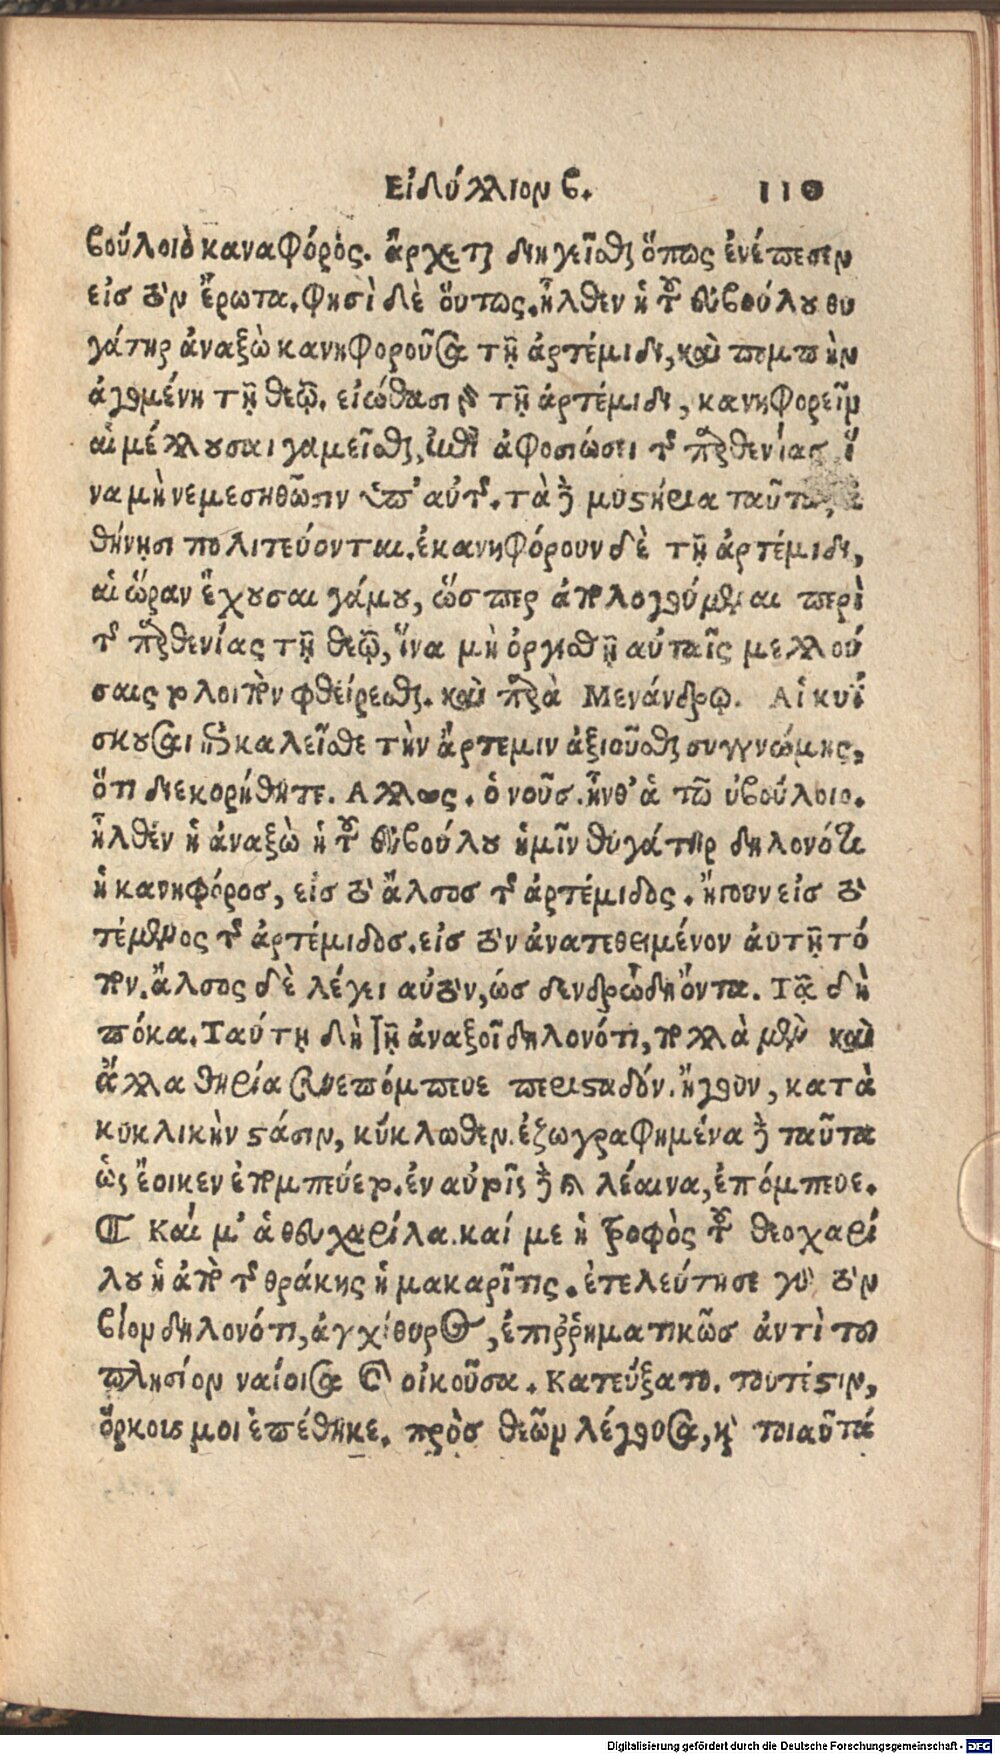 Εἰδύλλιον β. 110
βούλοιὸ καναφόρὸς. ἄρχεται διηγεῖσθαι ὅπως ἐνέπεσεν
εἰς τὸν ἔρωτα. φησὶ δὲ οὕτως. ἦλθεν ἡ τοῦ εὐβούλου θυ
γάτηρ ἀναξὼ κανηφοροῦσα τῇ ἀρτέμιδι, καὶ πομπὴν
ἀγομένη τῇ θεῷ. εἰώθασι γὰρ τῇ ἀρτέμιδι, κανηφορεῖν
αἱ μέλλουσαι γαμεῖσθαι, ἐπὶ ἀφοσιώσει τῆς παρθενίας ἵ
να μὴ νεμεσηθῶσιν ὑπ' αὐτῆς. τὰ δὲ μυστήρια ταῦτα
θήνησι πολιτεύονται. ἐκανηφόρουν δὲ τῇ ἀρτέμιδι,
αἱ ὥραν ἔχουσαι γάμου, ὥσπερ ἀπολογούμεναι περὶ
τῆς παρθενίας τῇ θεῷ, ἵνα μὴ ὀργισθῇ αὐταῖς μελλού
σαις λοιπὸν φθείρεσθαι. καὶ παρὰ Μενάνδρῳ. Αἱ κυΐ
σκουσαι καλεῖσθε τὴν ἄρτεμιν ἀξιοῦσθαι συγγνώμης,
ὅτι διεκορήθητε. Ἄλλως. ὁ νοῦς. ἦνθ' ἁ τῶ ὐβούλοιο.
ἦλθεν ἡ ἀναξὼ ἡ τοῦ εὐβούλου ἡμῖν θυγάτηρ δηλονότι
ἡ κανηφόρος, εἰς τὸ ἄλσος τῆς ἀρτέμιδος. ἤγουν εἰς τὸ
τέμενος τῆς ἀρτέμιδος. εἰς τὸν ἀνατεθειμένον αὐτῇ τό
πον. ἄλσος δὲ λέγει αὐτὸν, ὡς δενδρώδη ὄντα. Τᾷ δὴ
πόκα. Ταύτῃ δὴ τῇ ἀναξοῖ δηλονότι, πολλὰ μὲν καὶ
ἄλλα θηρία συνεπόμπευε περισταδόν. ἤγουν, κατὰ
κυκλικὴν στάσιν, κύκλωθεν. ἐζωγραφημένα δὲ ταῦτα
ὡς ἔοικεν ἐπομπεύεν. ἐν αὐτοῖς δὲ καὶ λέαινα, ἐπόμπευε.
¶ Καί μ' ἁ θευχαρίλα. καί με ἡ τροφὸς τοῦ θεοχαρί
λου ἡ ἀπὸ τῆς θράκης ἡ μακαρῖτις. ἐτελεύτησε γὰρ τὸν
βίον δηλονότι, ἀγχίθυρος, ἐπιῤῥηματικῶς ἀντὶ του
πλησίον ναίοισα καὶ οἰκοῦσα. Κατεύξατο. τουτέστιν,
ὅρκους μοι ἐπέθηκε. πρὸς θεῶν λέγουσα, καὶ τοιαῦτά
Digitalisierung gefördert durch die Deutsche Forschungsgemeinschaft - DFG